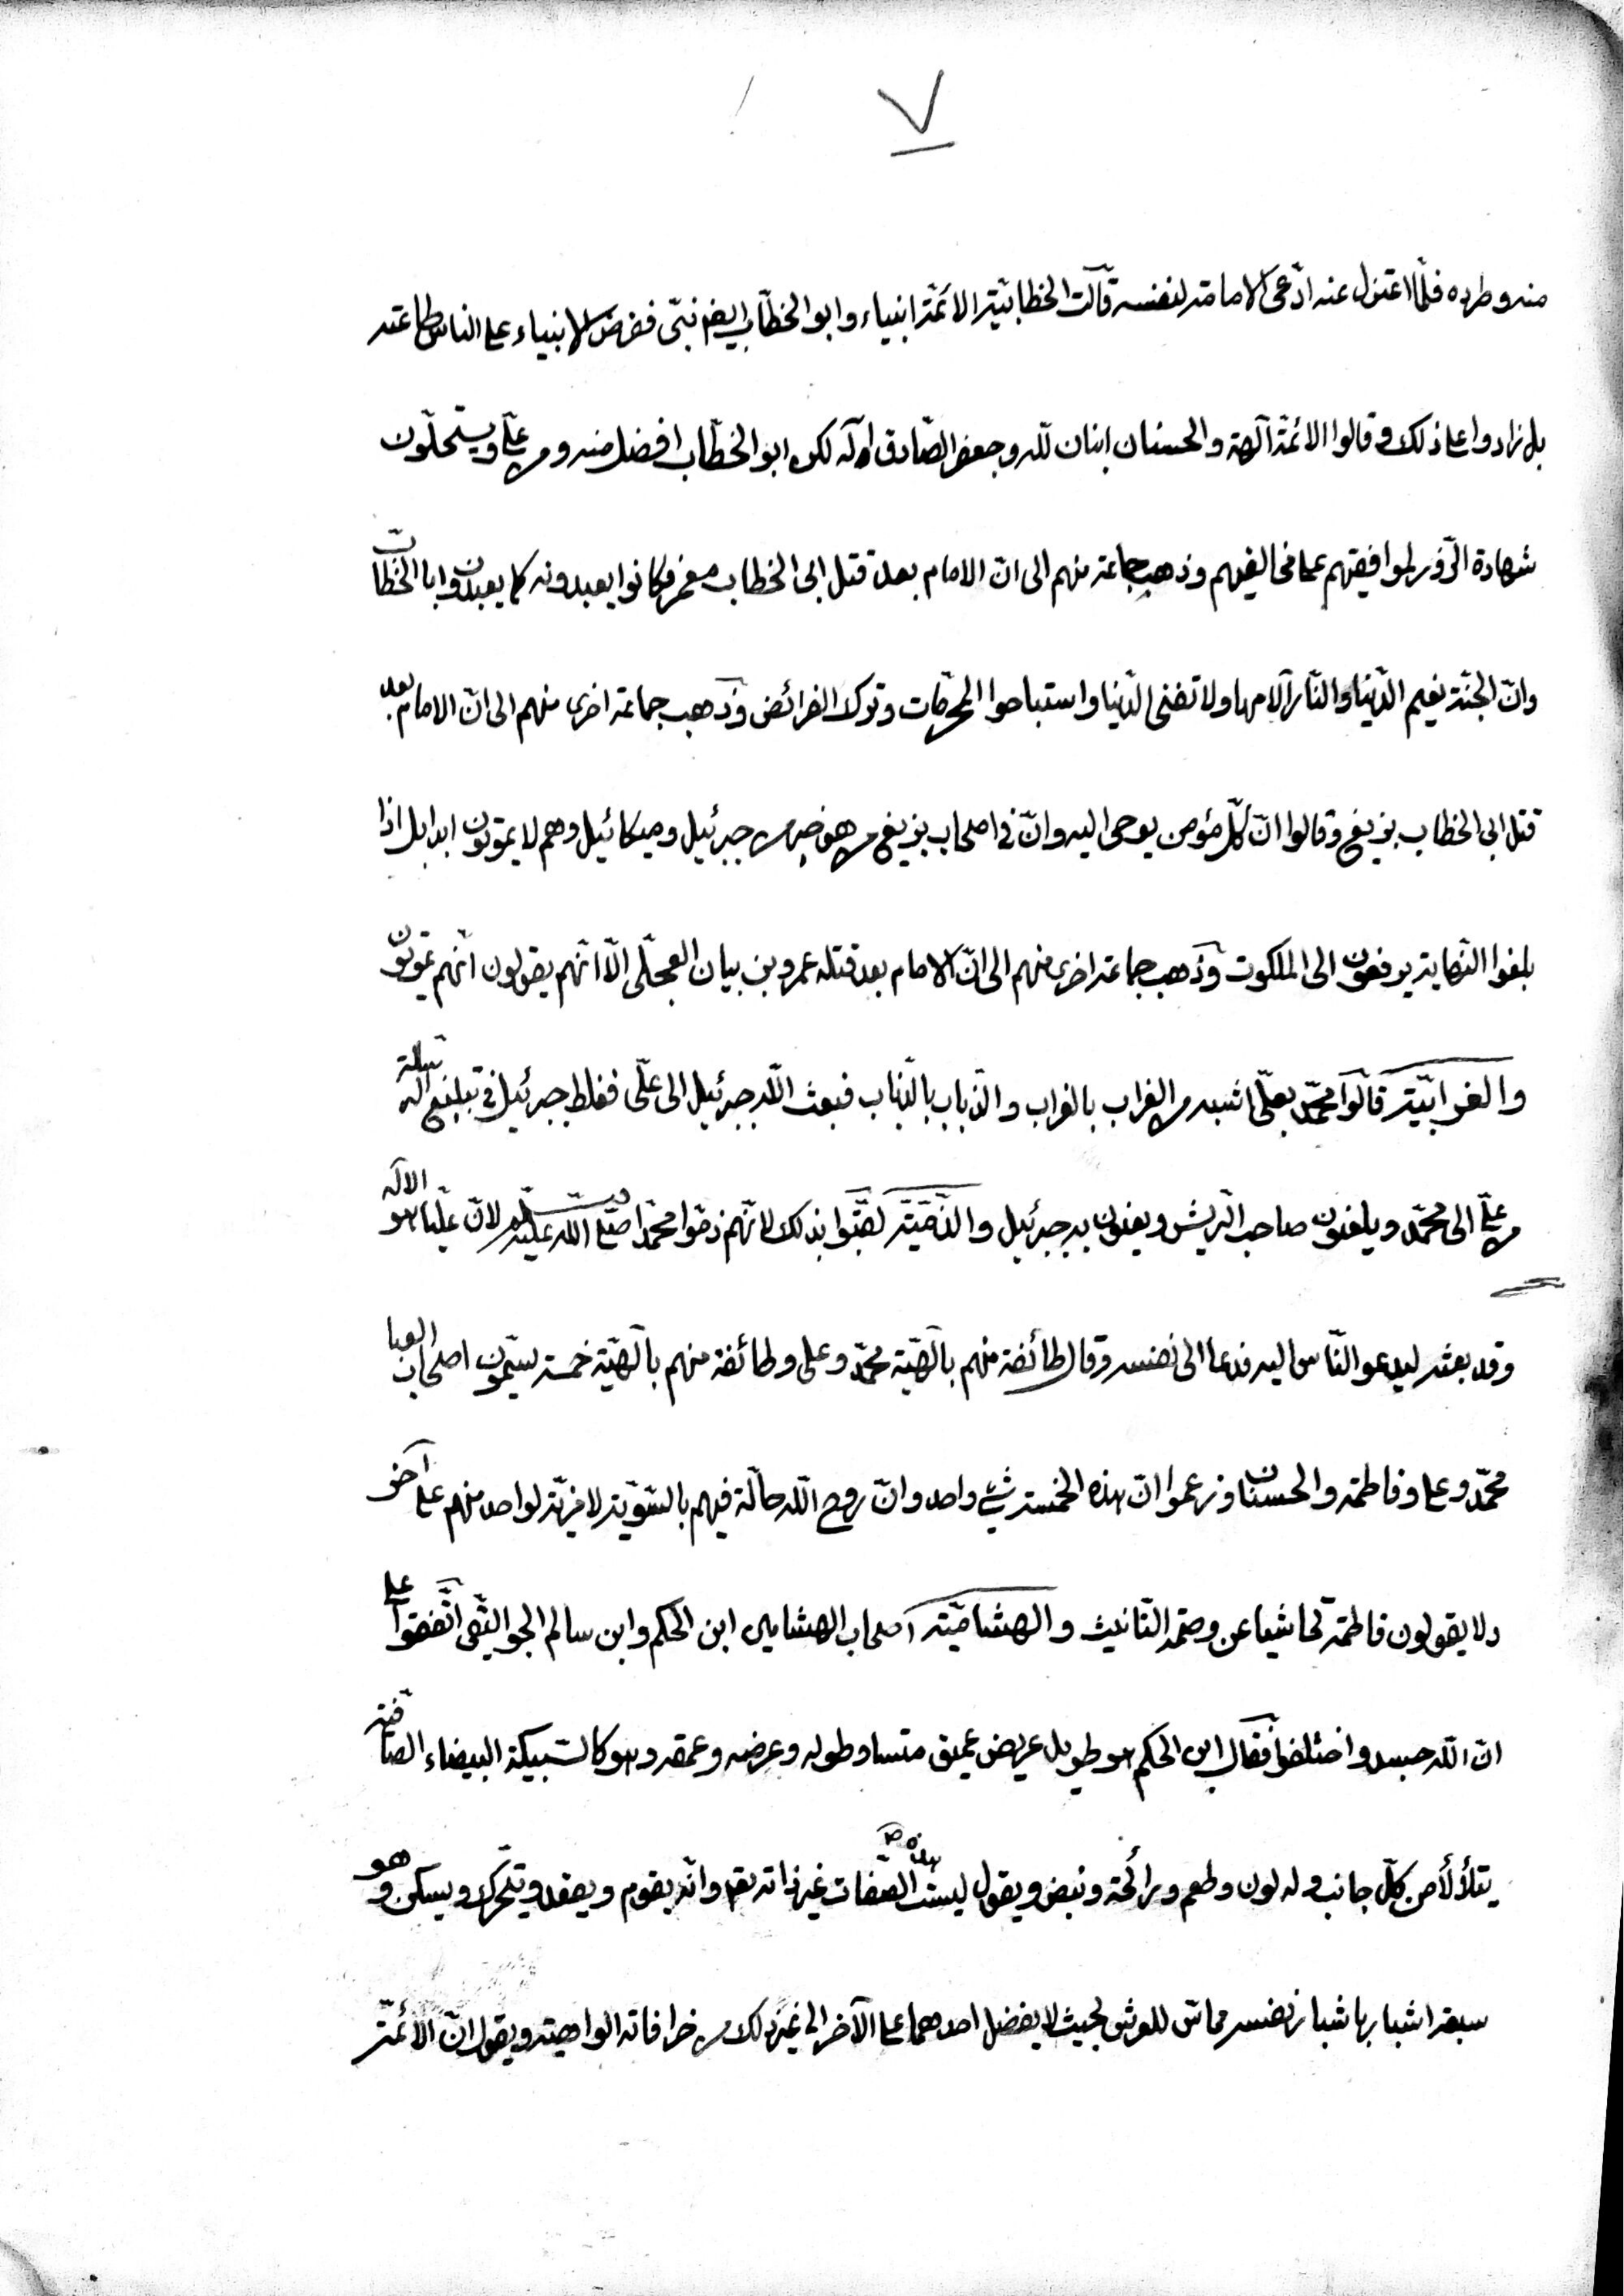 ٧
منه وطرده فلمّا اعتزل عنه ادّعى الامامة لنفسه قالت الخطابيّة الائمّة انبياء وابو الخطّاب ايضم نبىّ ففرض الانبياء على الناس طاعته
بل زادوا على ذلك وقالوا الائمّة آلهة والحسنان ابنان للّه وجعفر الصّادق اله لكن ابو الخطّاب افضل منه ومن علىّ ويستحلّون
شهادة الزّور لموافقيهم على مخالفيهم وذهب جماعة منهم الى انّ الامام بعد قتل ابى الخطاب معمر فكانوا يعبدونه كما يعبدون ابا الخطّاب
وانّ الجنّة نعيم الدّنيا والنّار آلامها ولا تفنى الدّنيا واستباحوا المحرّمات وترك الفرائض وذهب جماعة اخرى منهم الى انّ الامام بعد
قتل ابى الخطاب بزيغ وقالوا انّ كلّ مؤمن يوحى اليه وانّ فى اصحاب بزيغ من هو خير من جبرئيل وميكائيل وهم لا يموتون ابدا بل اذا
بلغوا النّهاية يرفعون الى الملكوت وذهب جماعة اخرى منهم الى انّ الامام بعد قتله عمرو بن بيان العجلّى الّا انّهم يقولون انّهم يموتون
والغرابيّة قالوا محمّد بعلىّ اشبه من الغراب بالغراب والذّباب بالذّباب فبعث اللّه جبرئيل الى علّى فغلط جبرئيل فى تبليغ الرسالة
من علىّ الى محمّد ويلعنون صاحب الرّيش ويعنون به جبرئيل والذّمّيّة لقبّوا بذلك لانّهم ذمّوا محمّدا صلّى اللّه عليه وسلّم لانّ عليّا هو الاله
وقد بعثه ليدعو النّاس اليه فدعا الى نفسه وقال طائفة منهم بالهيّة محمّد وعلى وطائفة منهم بالهيّة خمسة يسمّون اصحاب العبا
محمّد وعلى وفاطمة والحسنان وزعموا انّ هذه الخمسة شئ واحد وانّ روح اللّه حالّة فيهم بالسّويّة لا مزيّة لواحد منهم على آخر
ولا يقولون فاطمة تحاشيا عن وصمة التّانيث والهشاميّة اصحاب الهشامين ابن الحكم وابن سالم الجواليقى اتّفقوا على
انّ اللّه جسد واختلفوا فقال ابن الحكم هو طويل عريض عميق متساو طوله وعرضه وعمقه وهو كالسّبيكة البيضاء الصّافية
يتلألأ من كلّ جانب وله لون وطعم ورائحة ونبض ويقول ليست هذه الصّفات غير ذاته تعم وانّه يقوم ويقعد ويتحّرك ويسكن وهو
سبعة اشبار باشبار نفسه مماسّ للعرش بحيث لا يفضل احدهما على الآخر الى غير ذلك من خرافاته الواهية ويقول انّ الائمّة